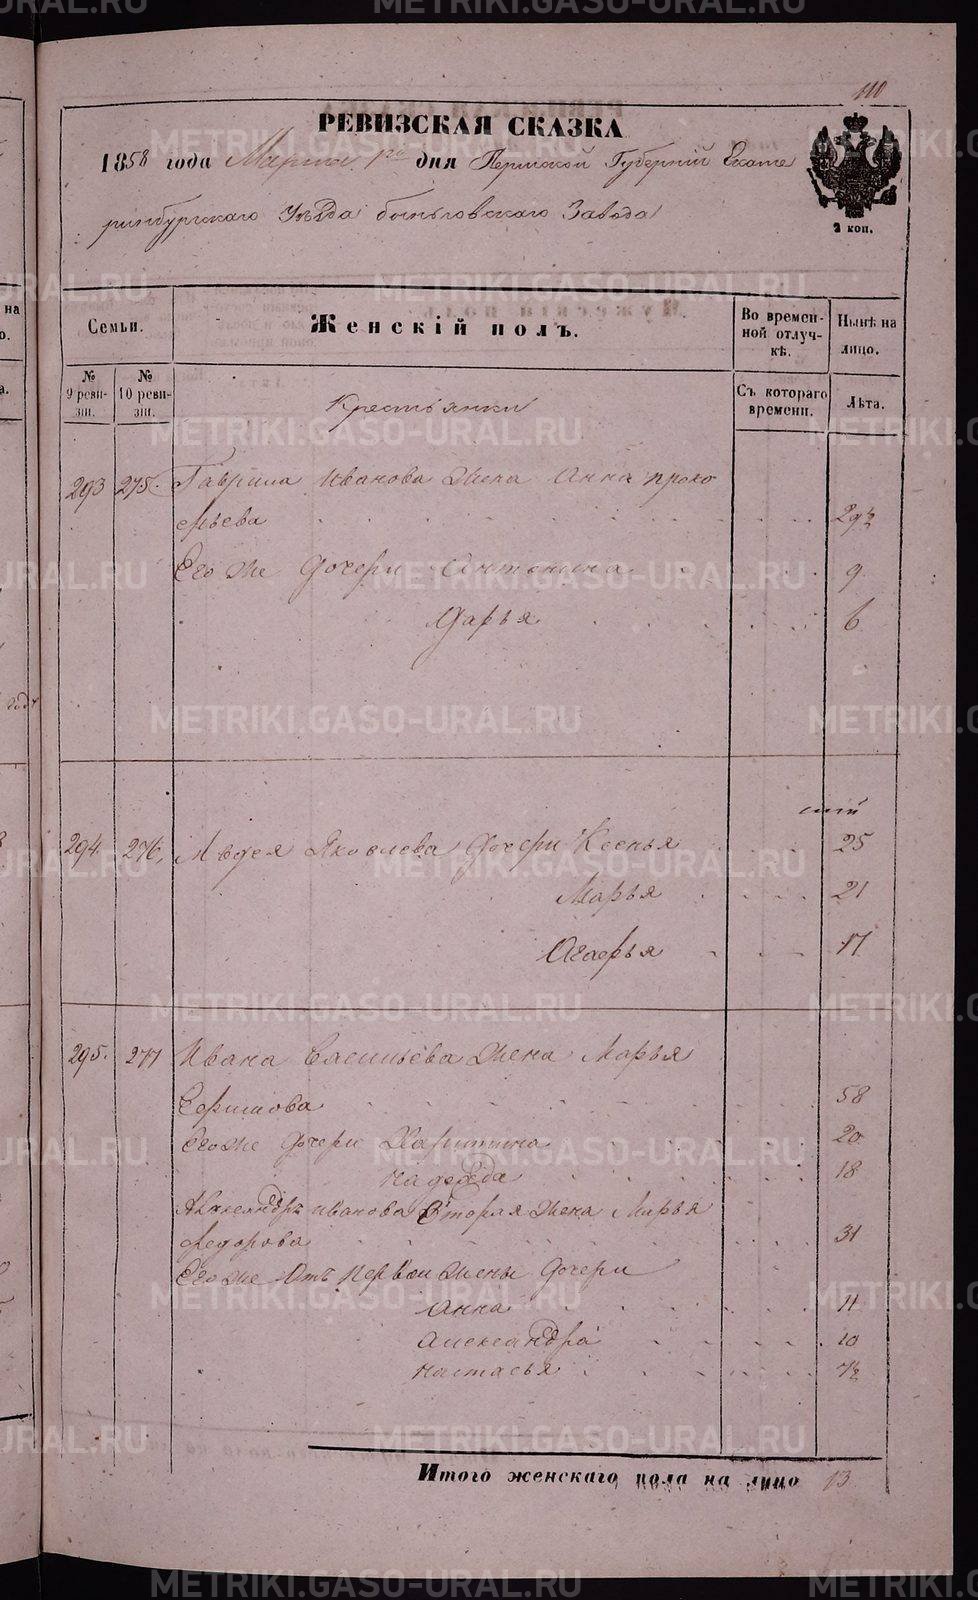 110
РЕВИЗСКАЯ СКАЗКА
1858 года Марта 1го дня Пермской Губерніи Екате
ринбургскаго Уѣзда быньговскаго Завода
2 коп.
Семьи.
Женскій полъ.
Во времен-
ной отлуч-
кѣ.
Нынѣ на
лицо.
№
9 реви-
зіи.
№
10 реви-
зіи.
Съ котораго
времени.
Лѣта.
Крестьянки
293 275. Гаврила Иванова Жена Анна проко
фьева 29½
Его же Дочери Антонина 9
Дарья 6
294. 276. Авдея Яковлева Дочери Ксенья 25
Марья 21
Агафья 17
295. 277 Ивана Васильева Жена Марья
58
Его же Дочери Харитина 20
надежда 18
Александръ иванова Вторая Жена Марья
федорова 31
Его же Отъ Первой Жены Дочери
Анна 11
Александра 10
настасья 7½
Итого женскаго пола на лицо 13
METRIKI.GASO-URAL.RU